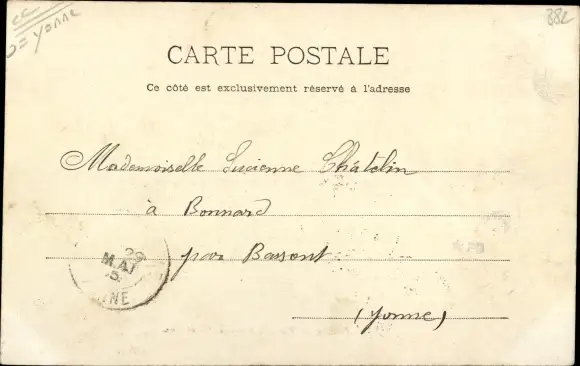 cc
D= Yonne
382
CARTE POSTALE
Ce côté est exclusivement réservé à l'adresse
Mademoiselle Lucienne Châtelin
à Bonnard
par Bassout
(Yonne)
29
MAI
NNE